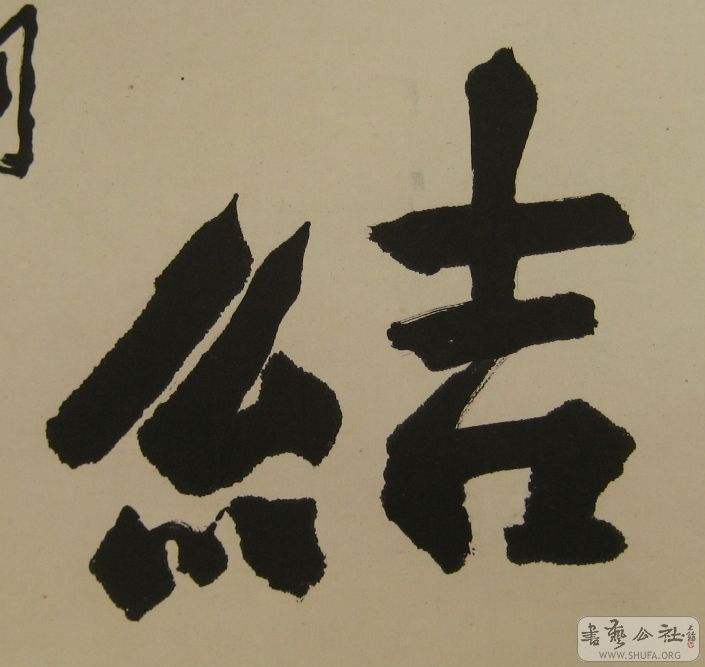 結
書藝公社
WWW.SHUFA.ORG